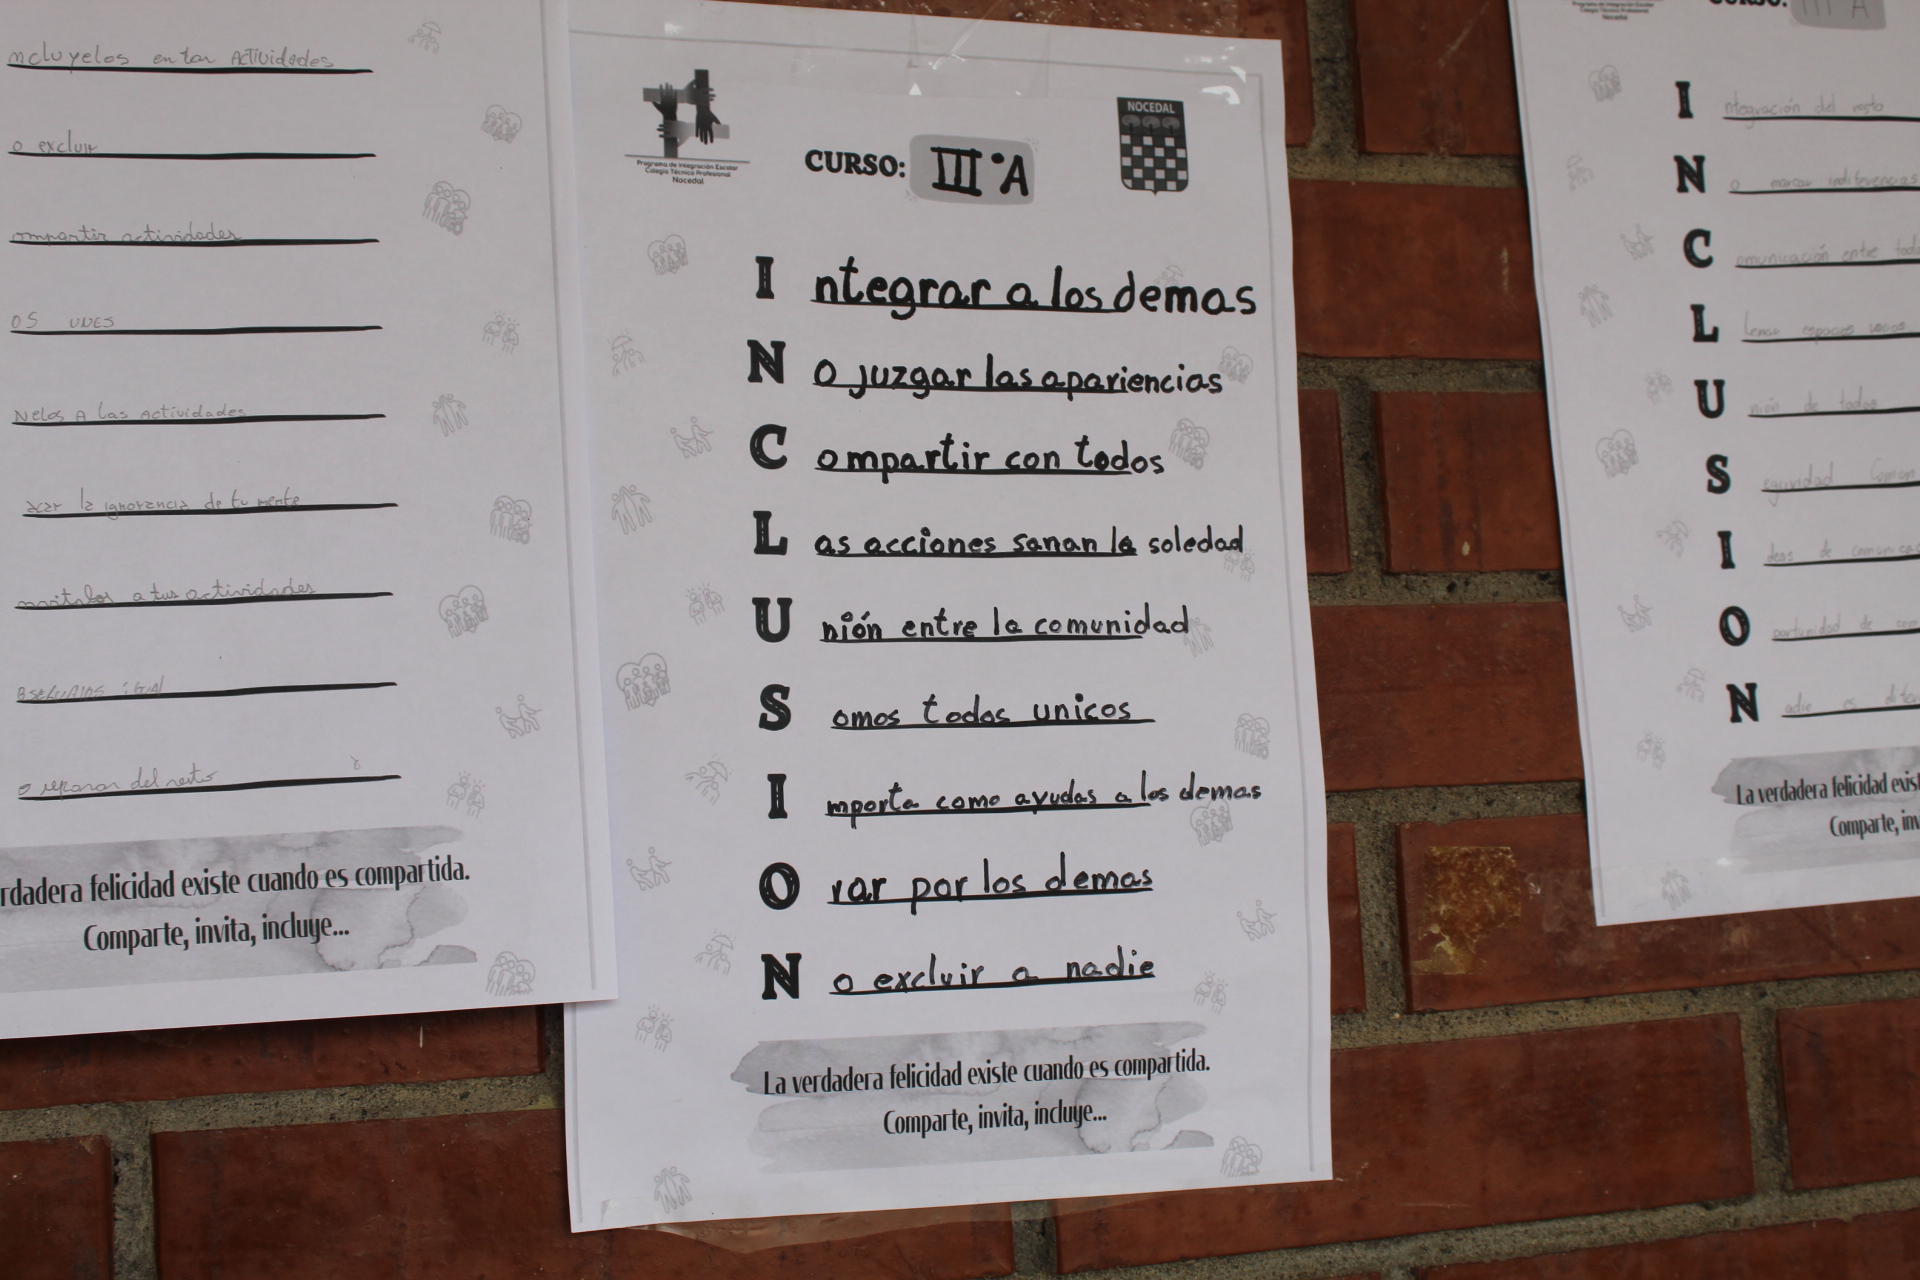 ncluyelos en tas Actividades
o excluir
ompartir actividades
os unes
Nelos A las Actividades
acar la ignorancia de tu mente
nvitalos a tus actividades
igual
o del resto
rdadera felicidad existe cuando es compartida.
Comparte, invita, incluye...
Programa de Integración Escolar
Colegio Técnico Profesional
Nocedal
CURSO: III°A
NOCEDAL
I ntegrar a los demas
N o juzgar las apariencias
C ompartir con todos
L as acciones sanan la soledad
U nión entre la comunidad
S omos todos unicos
I mporta como ayudas a los demas
O rar por los demas
N o excluir a nadie
La verdadera felicidad existe cuando es compartida.
Comparte, invita, incluye...
Programa de Integración Escolar
Colegio Técnico Profesional
Nocedal
CURSO: III A
I ntegración del resto
N o marcar indiferencias
C omunicación entre todo
L lenar espacios vacios
U nión de todos
S eguridad Comun
I deas de comunica
O portunidad de com
N adie es difer
La verdadera felicidad exist
Comparte, inv